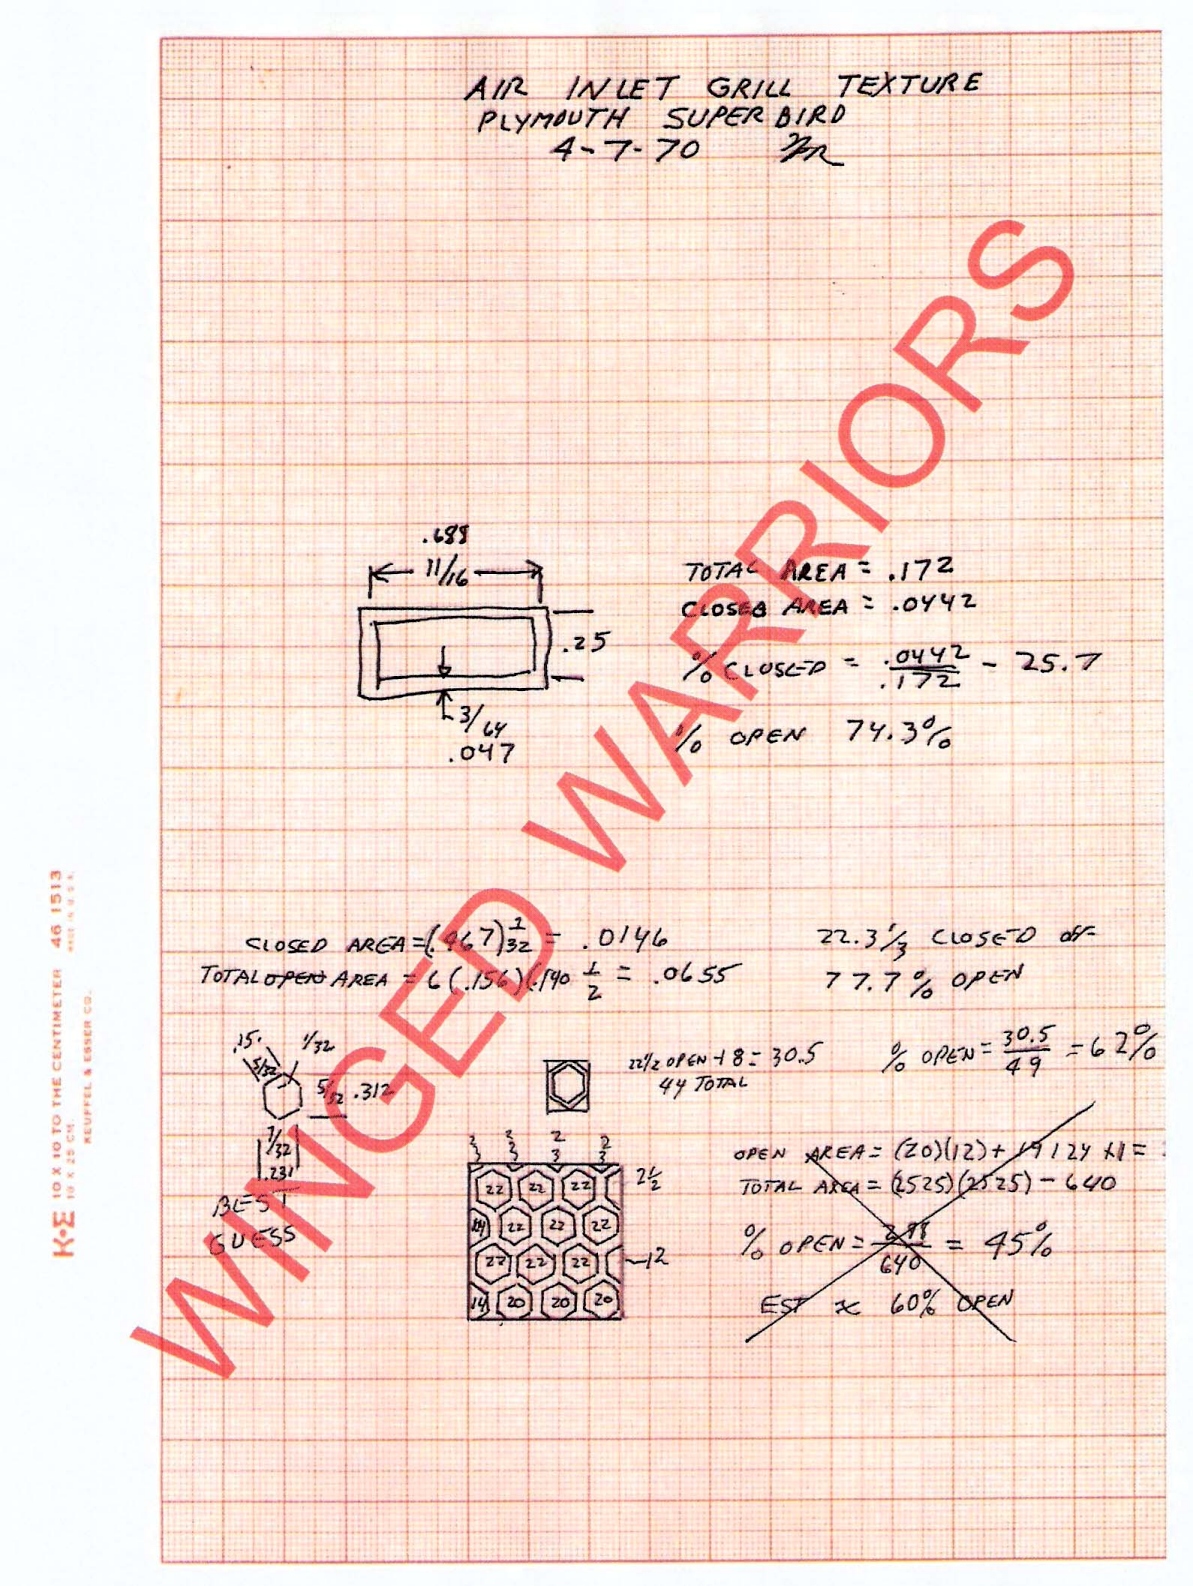 AIR INLET GRILL TEXTURE
PLYMOUTH SUPERBIRD
4-7-70
.688
11/16
.25
3/64
.047
TOTAL AREA = .172
CLOSED AREA = .0442
% CLOSED = .0442/.172 - 25.7
% OPEN 74.3%
CLOSED AREA = (.467) 1/32 = .0146
TOTAL OPEN AREA = 6(.156)(.140 1/2 = .0655
22.3% CLOSED off
77.7% OPEN
5/32
1/32
5/32 .312
7/32
.231
BEST
GUESS
22 1/2 OPEN + 8 = 30.5
44 TOTAL
% OPEN = 30.5/49 = 62%
2 2 2 2
3 3 3 3
22 22 22 2 1/2
14 22 22 22
22 22 22 12
14 20 20 20
OPEN AREA = (20)(12) + 19 124 +1 =
TOTAL AREA = (2525)(2525) - 640
% OPEN = 640 = 45%
EST ≈ 60% OPEN
K+E 10 X 10 TO THE CENTIMETER 46 1513
18 X 25 CM.
KEUFFEL & ESSER CO.
MADE IN U.S.A.
WINGED WARRIORS